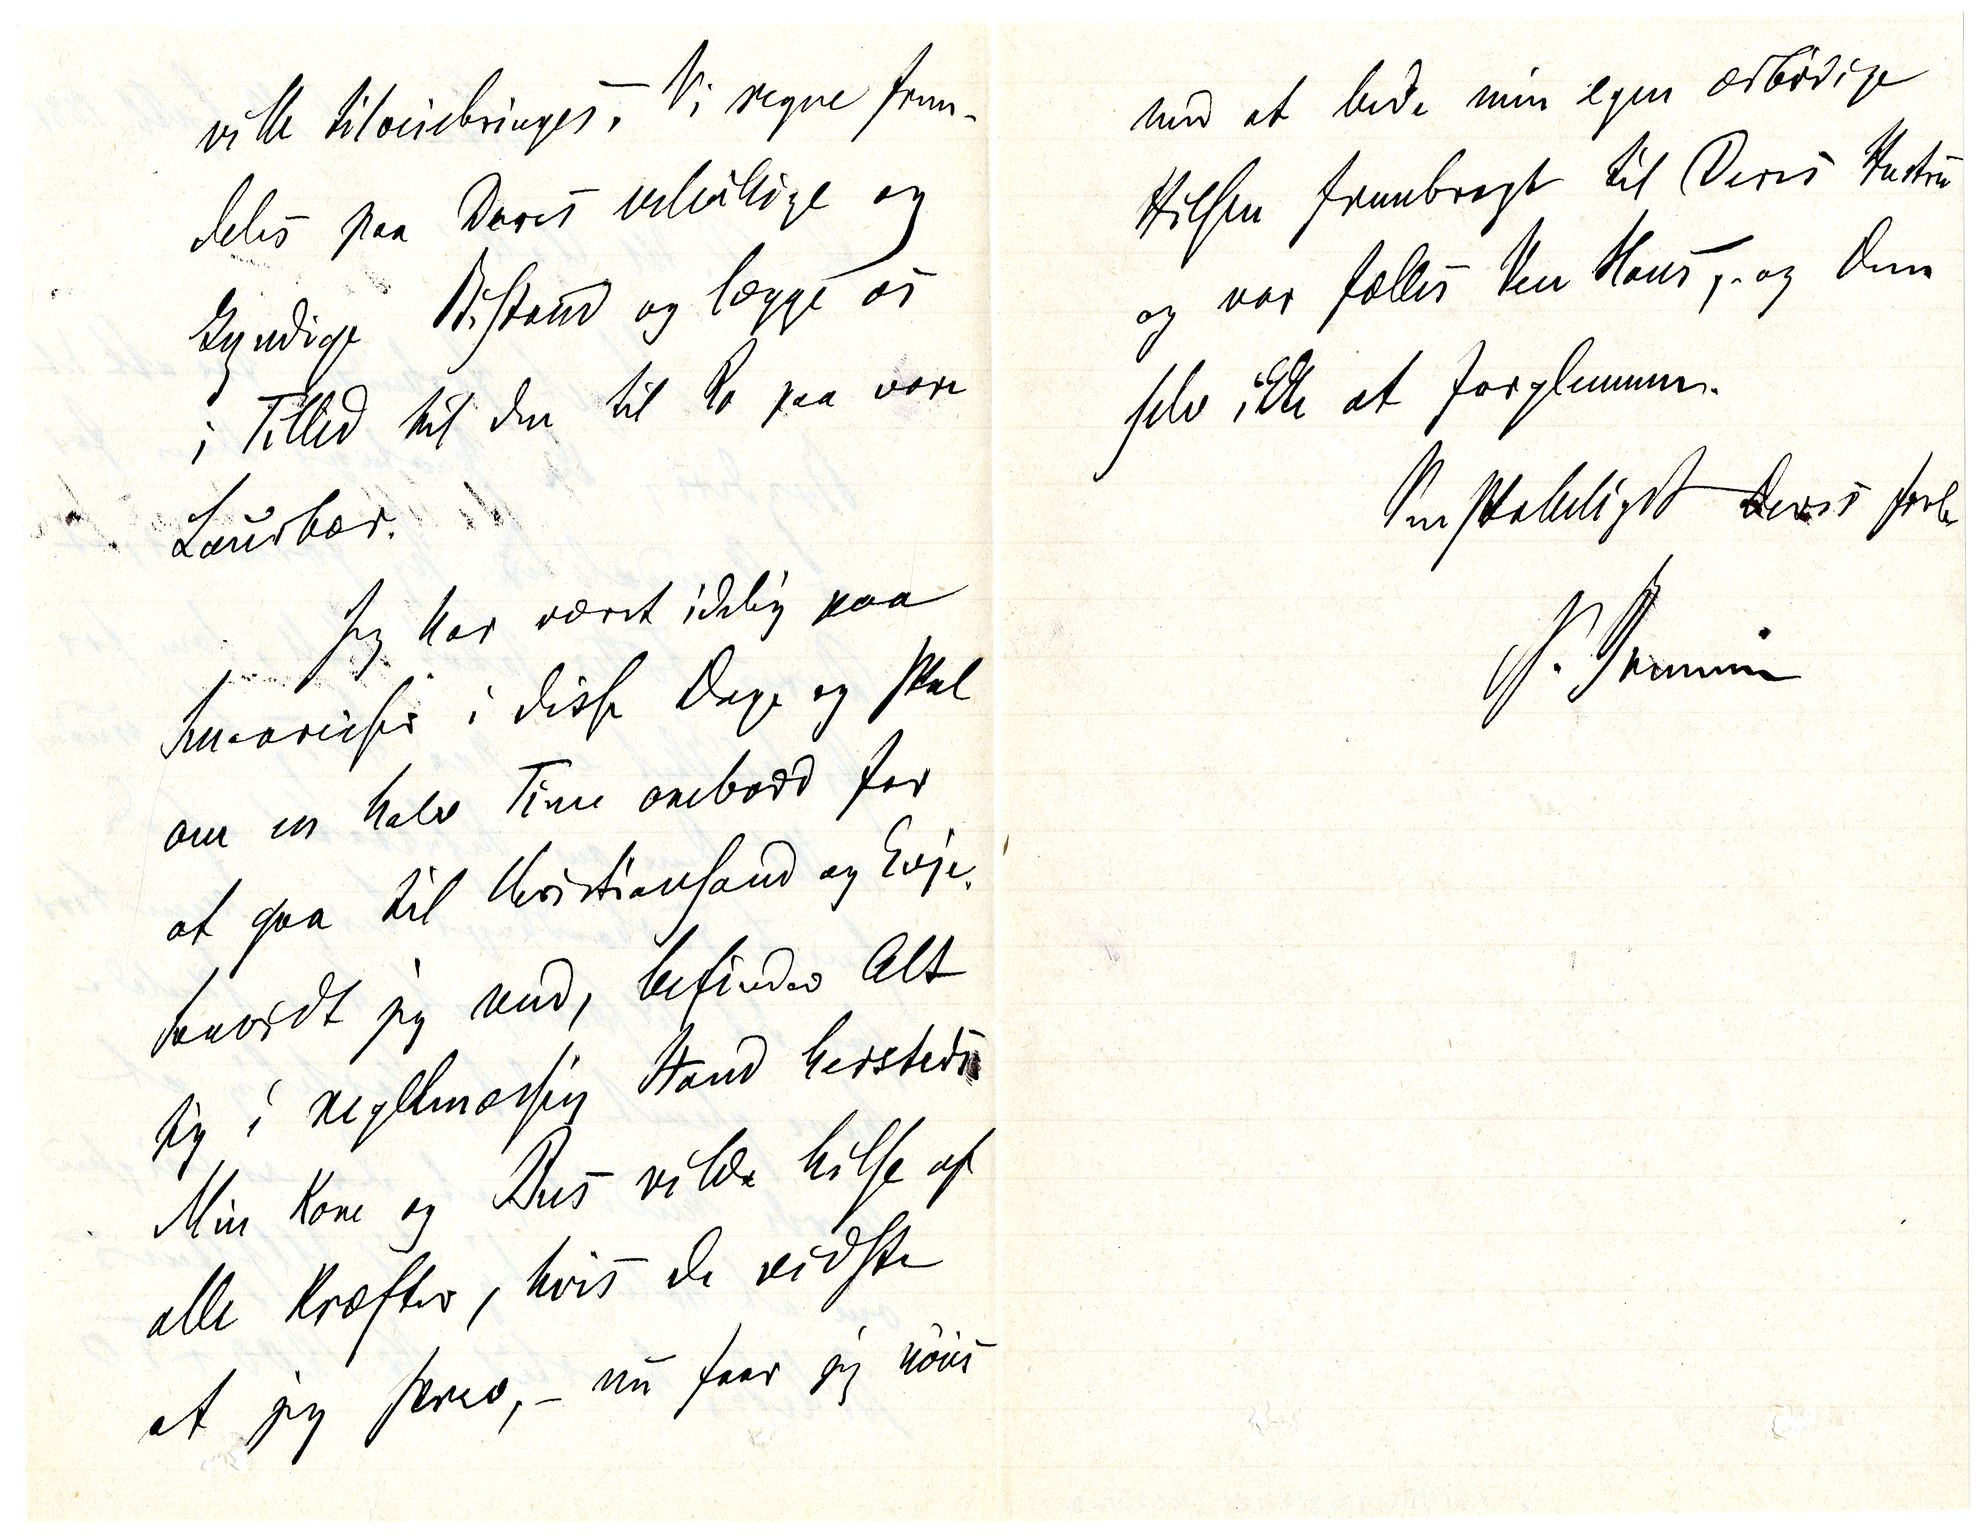 ville tilveiebringes. Vi regne frem-
deles paa Deres velvillige og
kyndige Bistand og lægge os
i Tillid til den til Ro paa vore
Laurbær.
Jeg har været idelig paa
Smaareiser i disse Dage og skal
om en halv Time ombord for
at gaa til Christiansand og Evje.
Saavidt jeg veed, befinder Alt
sig i reglemæssig Stand hersteds
Min Kone og Bus vilde hilse af
alle Kræfter, hvis de vidste
at jeg skrev, – nu faar jeg nöies
med at bede min egen ærbödige
Hilsen frembragt til Deres Hustru
og vor fælles Ven Hans, – og Dem
selv ikke at forglemme.
Venskabeligst Deres forb.